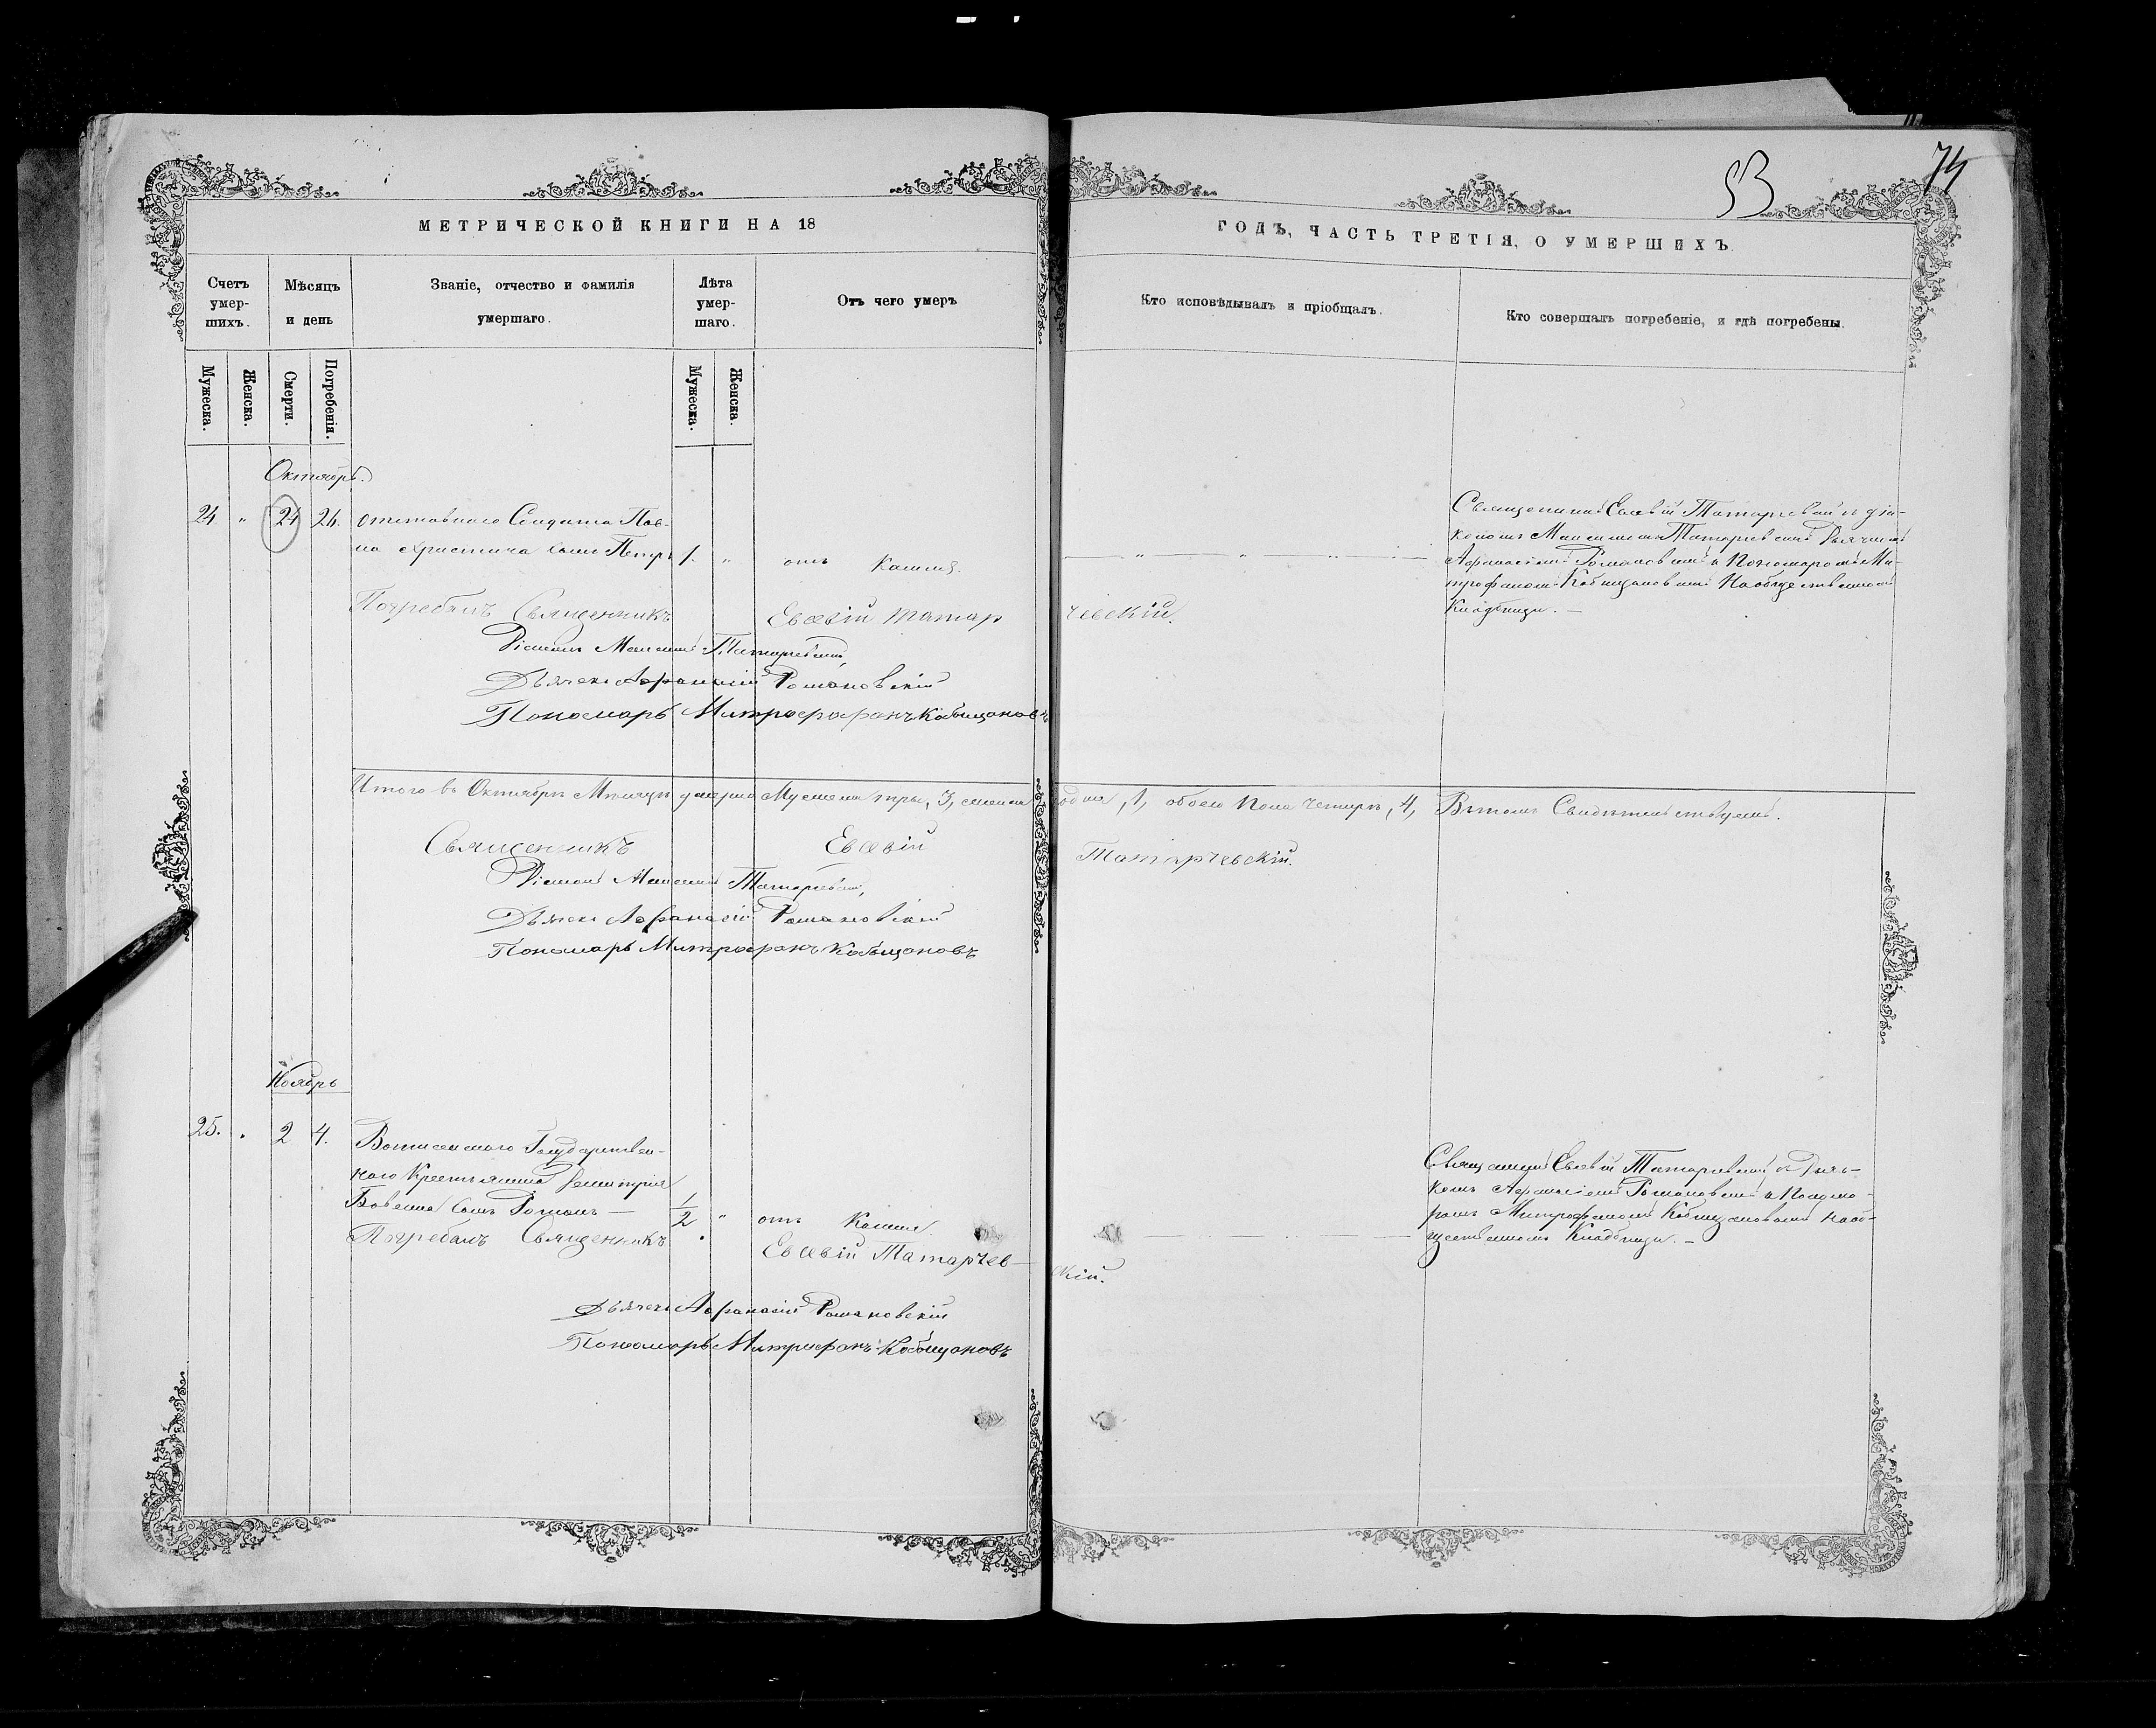 53
74
МЕТРИЧЕСКОЙ КНИГИ НА 18
ГОДЪ, ЧАСТЬ ТРЕТІЯ, О УМЕРШИХЪ.
Счетъ умер-шихъ.
Мѣсяцъ и день
Званіе, отчество и фамилія умершаго.
Лѣта умер-шаго.
Отъ чего умеръ
Кто исповѣдывалъ и пріобщалъ.
Кто совершалъ погребеніе, и гдѣ погребены.
Мужеска.
Женска.
Смерти.
Погребенія.
Мужеска.
Женска.
Октябрь.
24 " 24 26. отставного Солдата Пав-
сынъ Петръ 1. " отъ Кашля.
Священникъ Евсевій Татарчевскій съ діа-
кономъ Татарчевскимъ Дьячкомъ
Афанасіемъ Романовскимъ и Пономаремъ Ми-
трофаномъ Кобыщановымъ На общественномъ
Кладбищи. —
Погребалъ Священникъ Евсевій Татарчевскій.
Діаконъ Татарчевскій
Дьячекъ Афанасій Романовскій
Пономарь Митрофанъ Кобыщановъ
Итого въ Октябрѣ Мѣсяцѣ умерло Мужеска три, 3, женска одна, 1, обоего Пола четыре, 4, Въ томъ Свидѣтельствуемъ.
Священникъ Евсевій Татарчевскій.
Діаконъ Татарчевскій,
Дьячекъ Афанасій Романовскій
Пономарь Митрофанъ Кобыщановъ
Ноябрь
25. " 2 4. Государствен-
наго Крестьянина Димитрія
сынъ Романъ — 1/2 " отъ Кашля
Священникъ Евсевій Татарчевскій съ Дьяч-
комъ Афанасіемъ Романовскимъ и Понома-
ремъ Митрофаномъ Кобыщановымъ на об-
щественномъ Кладбищи. —
Погребалъ Священникъ Евсевій Татарчев-
скій.
Дьячекъ Афанасій Романовскій
Пономарь Митрофанъ Кобыщановъ